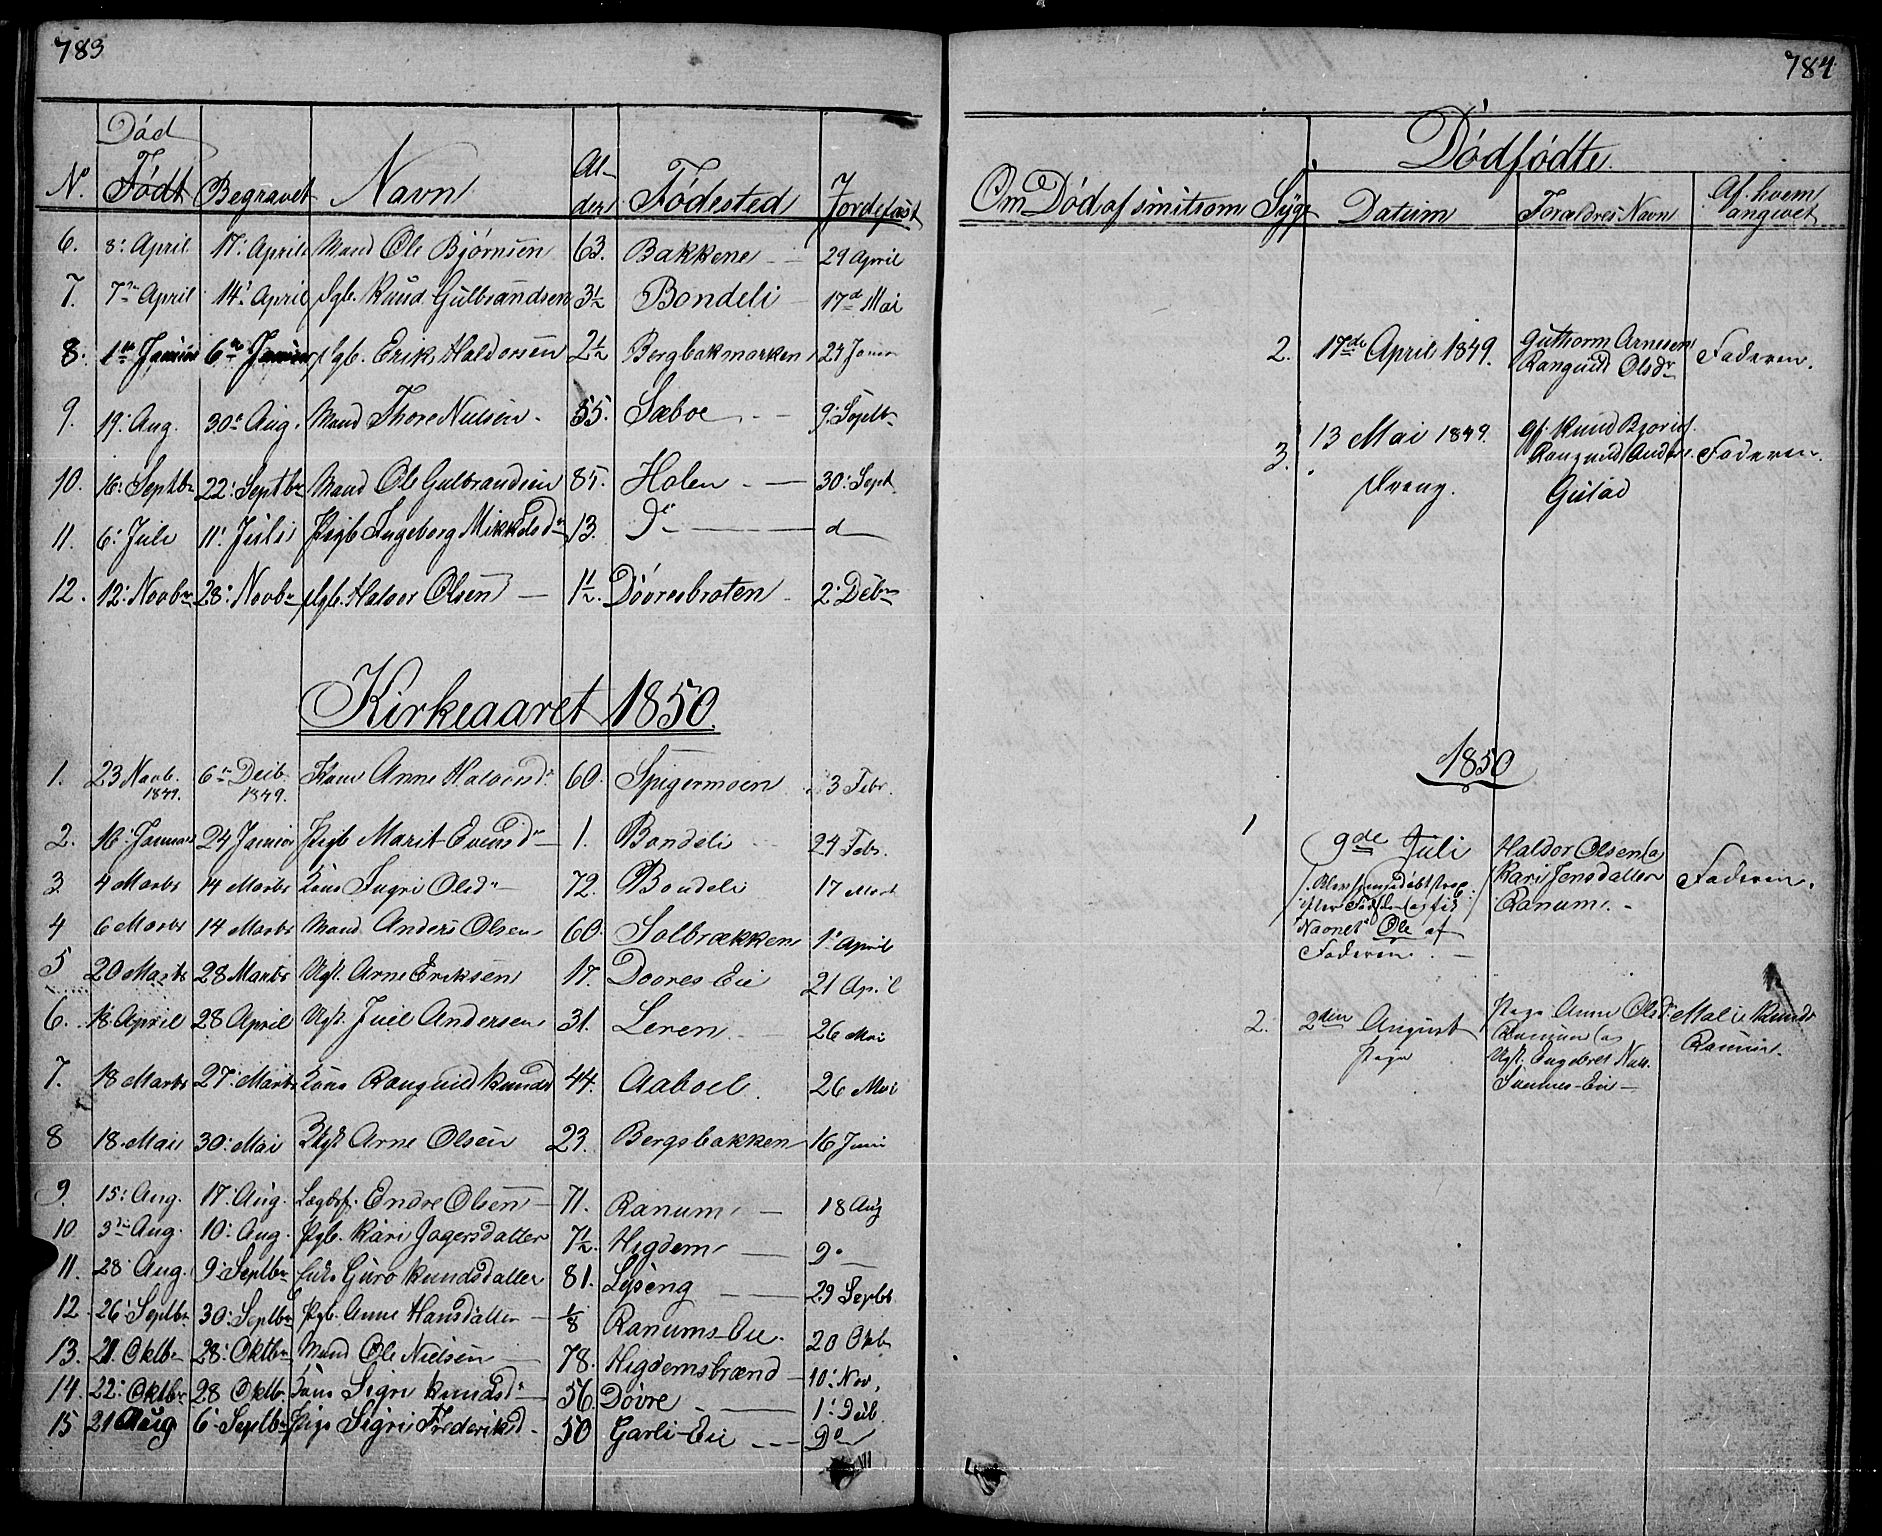 783
Død
N° Født Begravet Navn Al- der Fødested Jordefæst
6. 8: April 17: April Mand Ole Bjørnsen 63. Bakkene 29 April
7. 7de April 14: April Pgb. Knud Gulbrandsen 3½ Bondeli 17d Mai
8. 1te Januar 6te Januar Pgb. Erik Haldorsen 2½ Bergbakmarken 24 Janu
9. 19: Aug. 30: Aug. Mand Thore Nielsen 55. Sæboe 9: Septb
10. 16: Septbr 22: Septbr Mand Ole Gulbrandsen 85. Holen 30: Sept.
11. 6: Juli 11: Juli Pigb Ingeborg Mikkelsd 13. D° d
12. 12: Novbr 28: Novbr Pgb. Halvor Olsen 1½. Døvresbroten 2: Debr
Kirkeaaret 1850.
1. 23 Novb. 1849. 6te Deib. 1849. Kone Anne Halvorsd 60. Spigermoen 3 Febr.
2. 16: Januar 24 Januar Pigb Marit Evensd 1. Bondeli 24 Febr.
3. 4 Marts 14 Marts Kone Ingri Olsd 72. Bondeli 17 Mart
4 6 Marts 14 Marts Mand Anders Olsen 60. Solbrækken 1: April
5 20 Marts 28 Marts Ugk. Arne Eriksen 17. Doores Eie 21 April
6. 18 April 28 April Ugk. Juel Andersen 31. Leren 26 Mai
7. 18 Marts 27: Marts Kone Rangnid Knudsd 44. Aaboel 26 Mai
8 18. Mai 30: Mai Ugk Arne Olsen 23. Bergsbakken 16 Juni
9. 15: Aug. 17: Aug. Lægdsf. Endre Olsen 71. Ranum 18 Aug
10 3de Aug. 10: Aug. Pgb. Kari Jogersdatter 7½. Higdem D°
11. 28 Aug. 9: Septbr Guro Knudsdatter 81. Lyseng 29 Septb
12. 26: Septbr 30: Septbr Pgb. Anne Hansdatter ⅛ Ranums-Eie 20 Oktb
13. 21. Oktb 28: Oktbr Mand Ole Nielsen 78. Higdemsbrænd 10: Nov.
14. 22: Oktbr 28 Oktb. Kone Sigri Knudsd 56. Døvre 1: Deib
15 21 Aug 6: Septbr Pige Sigri Frederiksd 50 Garli-Eie D°
784
Dødfødte.
Om Død af smitsom Syge Datum Forældres Navn Af hvem angivet
2. 17de April 1849. Guttorm Arnesen Rangnid Olsdr Faderen.
3. 13 Mai 1849. Gf. Knud Bjør Rangnid Ander Faderen.
Dreng. Gulad
1850
1 9de Juli Haldor Olsen og Faderen.
Kari Jensdatter
Ranum.
Navnet Ole af
Faderen.
2. 2den August Pige Anne Olsd Mali Knuds
Pige Ranum og Ranum.
Ugk. Engebret
Eie